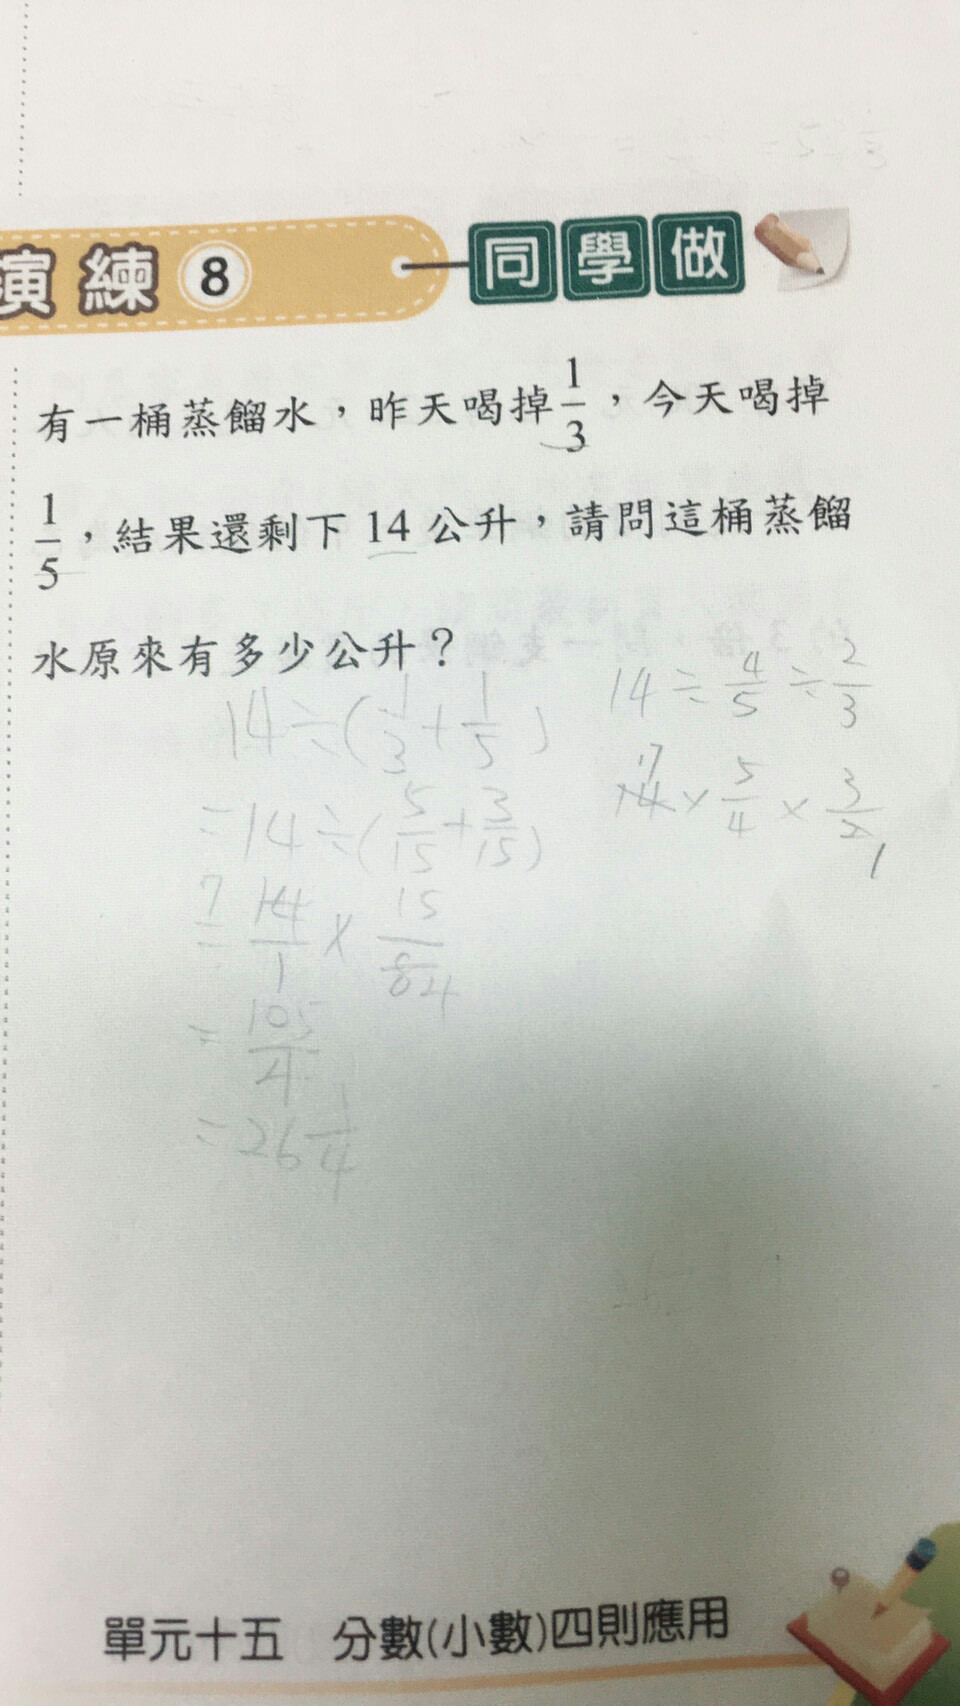 演練 8 同學做
有一桶蒸餾水，昨天喝掉1/3，今天喝掉
1/5，結果還剩下 14 公升，請問這桶蒸餾
水原來有多少公升？
14÷(1/3+1/5)
=14÷(5/15+3/15)
7
=14/1×15/8 4
=105/4
=26 1/4
14÷4/5÷2/3
7
14×5/4×3/2
1
單元十五 分數(小數)四則應用